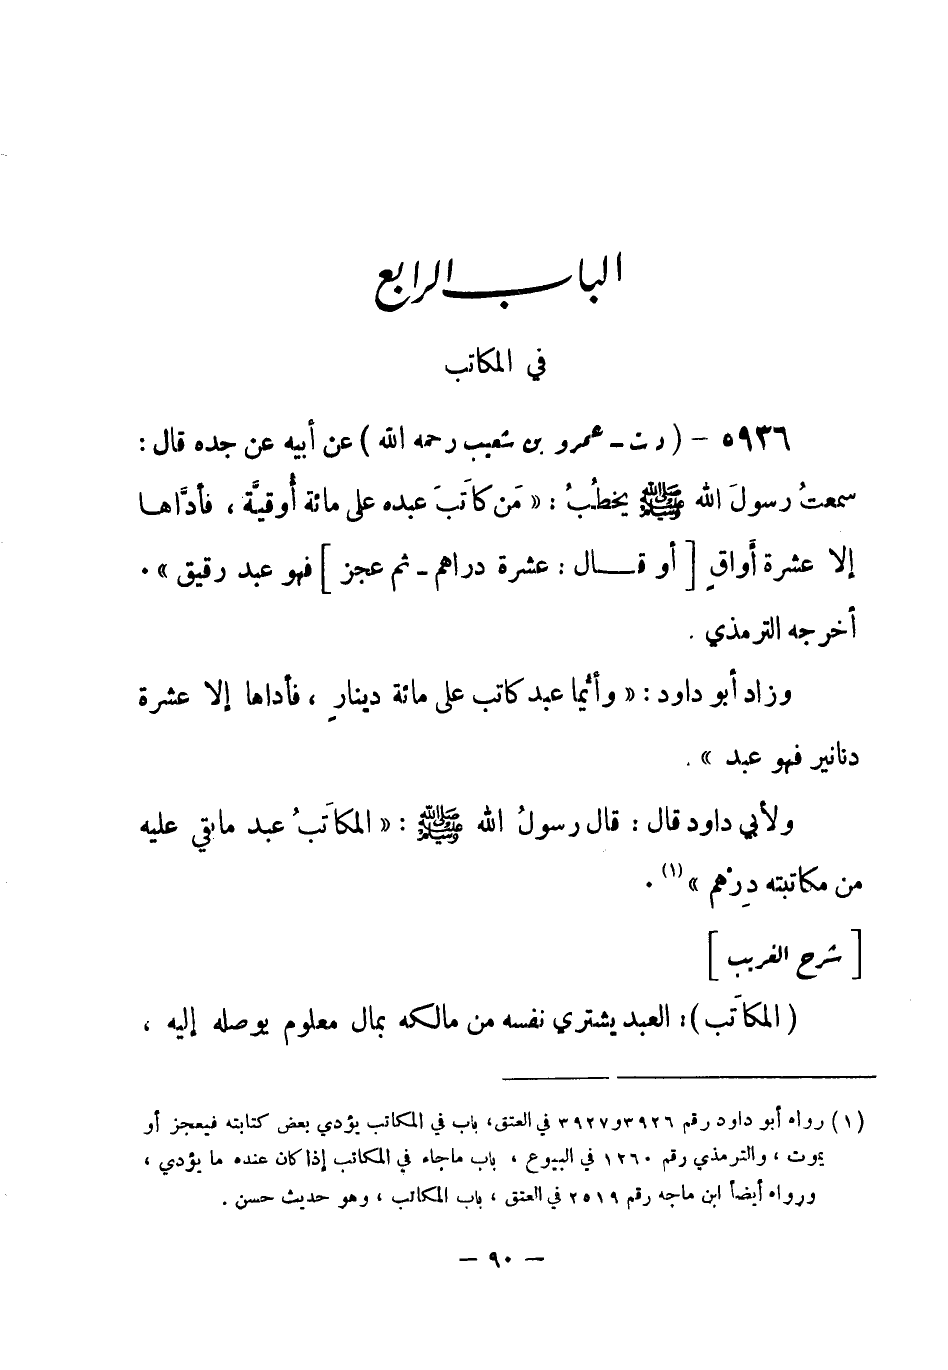 الباب الرابع
في المكاتب
٥٩٣٦ – ( د ت ـ عمرو بن شعيب رحمه الله ) عن أبيه عن جده قال :
سمعتُ رسولَ الله ﷺ يخطُبُ : « مَن كاتَبَ عبده على مائة أُوقيَّة ، فأدَّاهـا
إلا عشرة أَواقٍ [ أو قـــال : عشرة دراهم ـ ثم عجز ] فهو عبد رقيق » .
أخرجه الترمذي .
وزاد أبو داود : « وأيُّما عبد كاتب على مائة دينارٍ ، فأداها إلا عشرة
دنانير فهو عبد » .
ولأبي داود قال : قال رسولُ الله ﷺ : « المكاتَبُ عبد ما بقي عليه
من مكاتبته دِرْهم » (١) .
[ شرح الغريب ]
( المكاتَب ) : العبد يشتري نفسه من مالكه بمال معلوم يوصله إليه ،
(١) رواه أبو داود رقم ٣٩٢٦ و ٣٩٢٧ في العتق ، باب في المكاتب يؤدي بعض كتابته فيعجز أو
يموت ، والترمذي رقم ١٢٦٠ في البيوع ، باب ماجاء في المكاتب إذا كان عنده ما يؤدي ،
ورواه أيضاً ابن ماجه رقم ٢٥١٩ في العتق ، باب المكاتب ، وهو حديث حسن .
– ٩٠ –